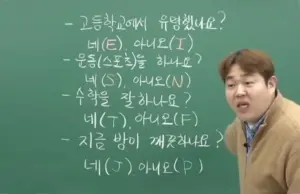 - 고등학교에서 유명했나요?
네(E), 아니오(I)
- 운동(스포츠)을 하나요?
네(S), 아니오(N)
- 수학을 잘하나요?
네(T), 아니오(F)
- 지금 방이 깨끗하나요?
네(J) 아니오(P)